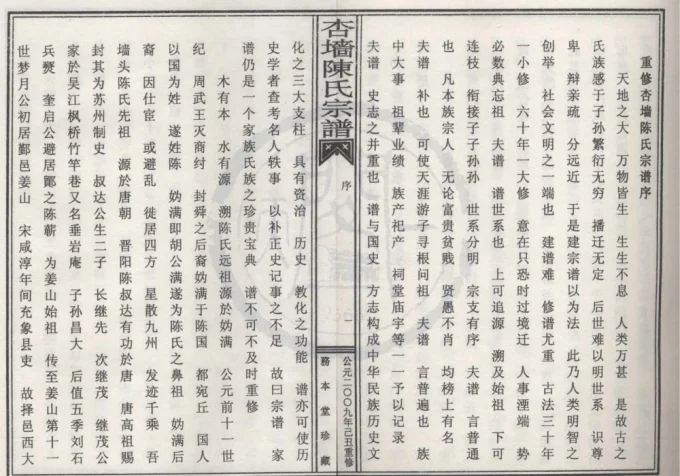 重修杏墙陈氏宗谱序
天地之大 万物皆生 生生不息 人类万甚 是故古之
氏族感于子孙繁衍无穷 播迁无定 后世难以明世系 识尊
卑 辩亲疏 分远近 于是建宗谱以为法 此乃人类明智之
创举 社会文明之一端也 建谱难 修谱尤重 古法三十年
一小修 六十年一大修 意在只恐时过境迁 人事湮端 势
必数典忘祖 夫谱 谱世系也 上可追源 溯及始祖 下可
连枝 衔接子子孙孙 世系分明 宗支有序 夫谱 言普通
也 凡本族宗人 无论富贵贫贱 贤愚不肖 均榜上有名
夫谱 补也 可使天涯游子寻根问祖 夫谱 言普遍也 族
中大事 祖辈业绩 族产祀产 祠堂庙宇等一一予以记录
夫谱 史志之并重也 谱与国史 方志构成中华民族历史文
杏墙陳氏宗譜
序
一
公元二00九年己丑重修
務本堂珍藏
化之三大支柱 具有资治 历史 教化之功能 谱亦可使历
史学者查考名人轶事 以补正史记事之不足 故曰宗谱 家
谱仍是一个家族氏族之珍贵宝典 谱不可不及时重修
木有本 水有源 溯陈氏远祖源於妫满 公元前十一世
纪 周武王灭商纣 封舜之后裔妫满于陈国 都宛丘 国人
以国为姓 遂姓陈 妫满即胡公满遂为陈氏之鼻祖 妫满后
裔 因仕宦 或避乱 徙居四方 星散九州 发迹千乘 吾
墙头陈氏先祖 源於唐朝 晋阳陈叔达有功於唐 唐高祖赐
封其为苏州制史 叔达公生二子 长继先 次继茂 继茂公
家於吴江枫桥竹竿巷又名垂岩庵 子孙昌大 后值五季刘石
兵燹 奎启公避居鄞之陈蕲 为姜山始祖 传至姜山第十一
世梦月公初居鄞邑姜山 宋咸淳年间充象县吏 故择邑西大